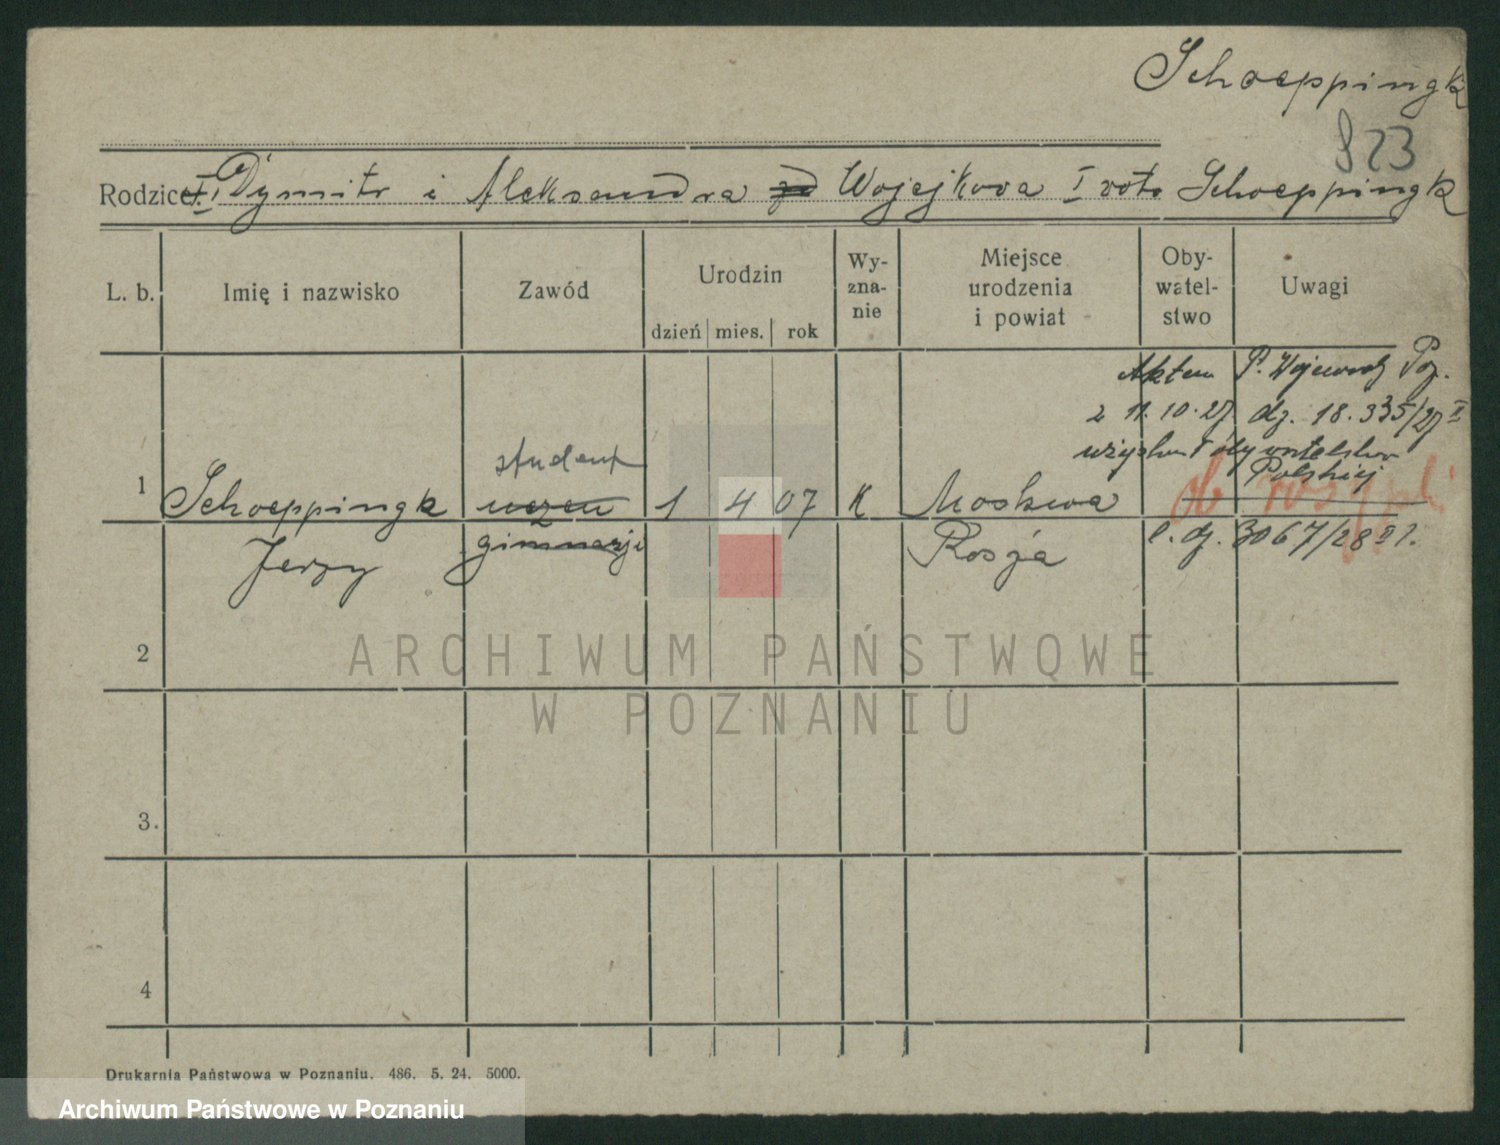 Schoeppingk
823
Rodzice: Dymitr i Aleksandra Wojejkowa I voto Schoeppingk
L. b. Imię i nazwisko Zawód Urodzin dzień mies. rok Wy-zna-nie Miejsce urodzenia i powiat Oby-watel-stwo Uwagi
Aktem P. Wojewody Poz.
z 11.10.27 dz. 18.335/27 II
uzyskał obywatelstwo
Polskiej
student
1 Schoeppingk uczeń 1 4 07 K Moskwa ob rosyjski
Jerzy gimnazji Rosja l. dz. 3067/28 II 1.
2
3.
4
ARCHIWUM PAŃSTWOWE
W POZNANIU
Drukarnia Państwowa w Poznaniu. 486. 5. 24. 5000.
Archiwum Państwowe w Poznaniu